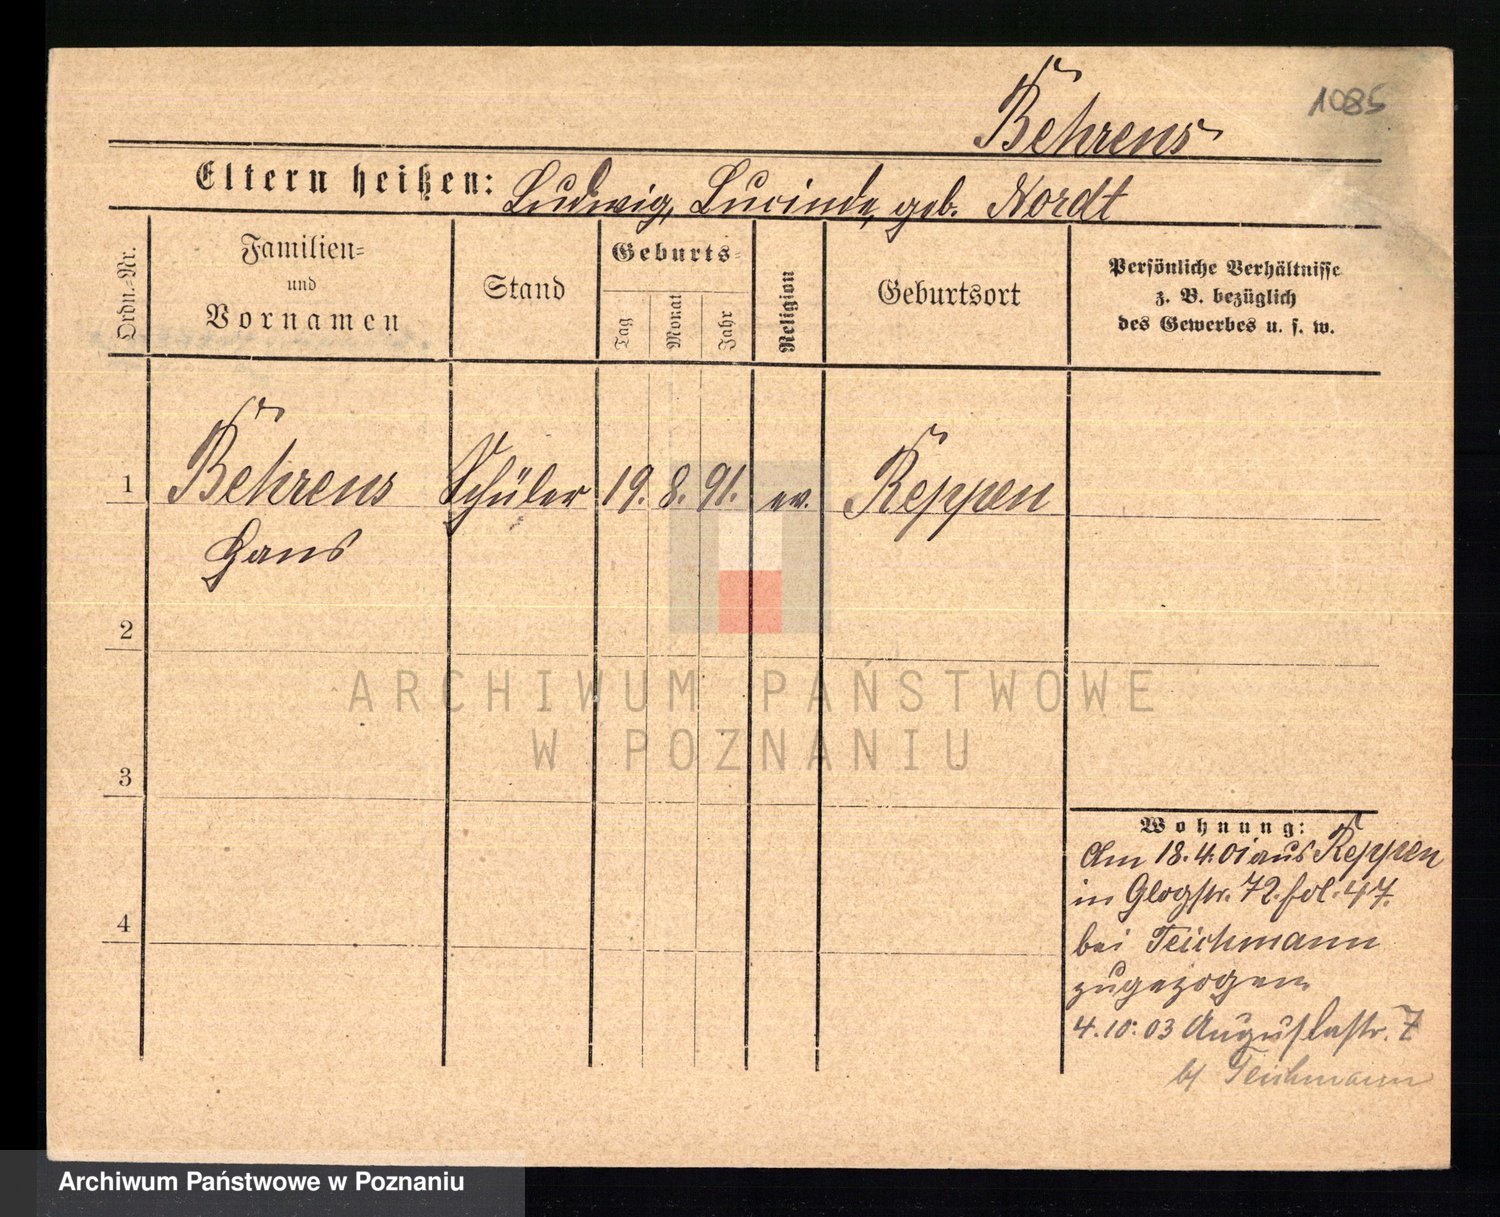 1085
Behrens
Eltern heißen: Ludwig, Lucinde, geb. Nordt
Ordn.-Nr.
Familien-
und
Vornamen
Stand
Geburts-
Tag
Monat
Jahr
Religion
Geburtsort
Persönliche Verhältnisse
z. B. bezüglich
des Gewerbes u. s. w.
1 Behrens Schüler 19. 8. 91. ev. Reppen
Hans
2
3
4
Wohnung:
Am 18.4.01 aus Reppen
in Glogstr. 72. fol. 47.
bei Teichmann
zugezogen
4.10.03 Augustastr. 7
b/ Teichmann
ARCHIWUM PAŃSTWOWE
W POZNANIU
Archiwum Państwowe w Poznaniu